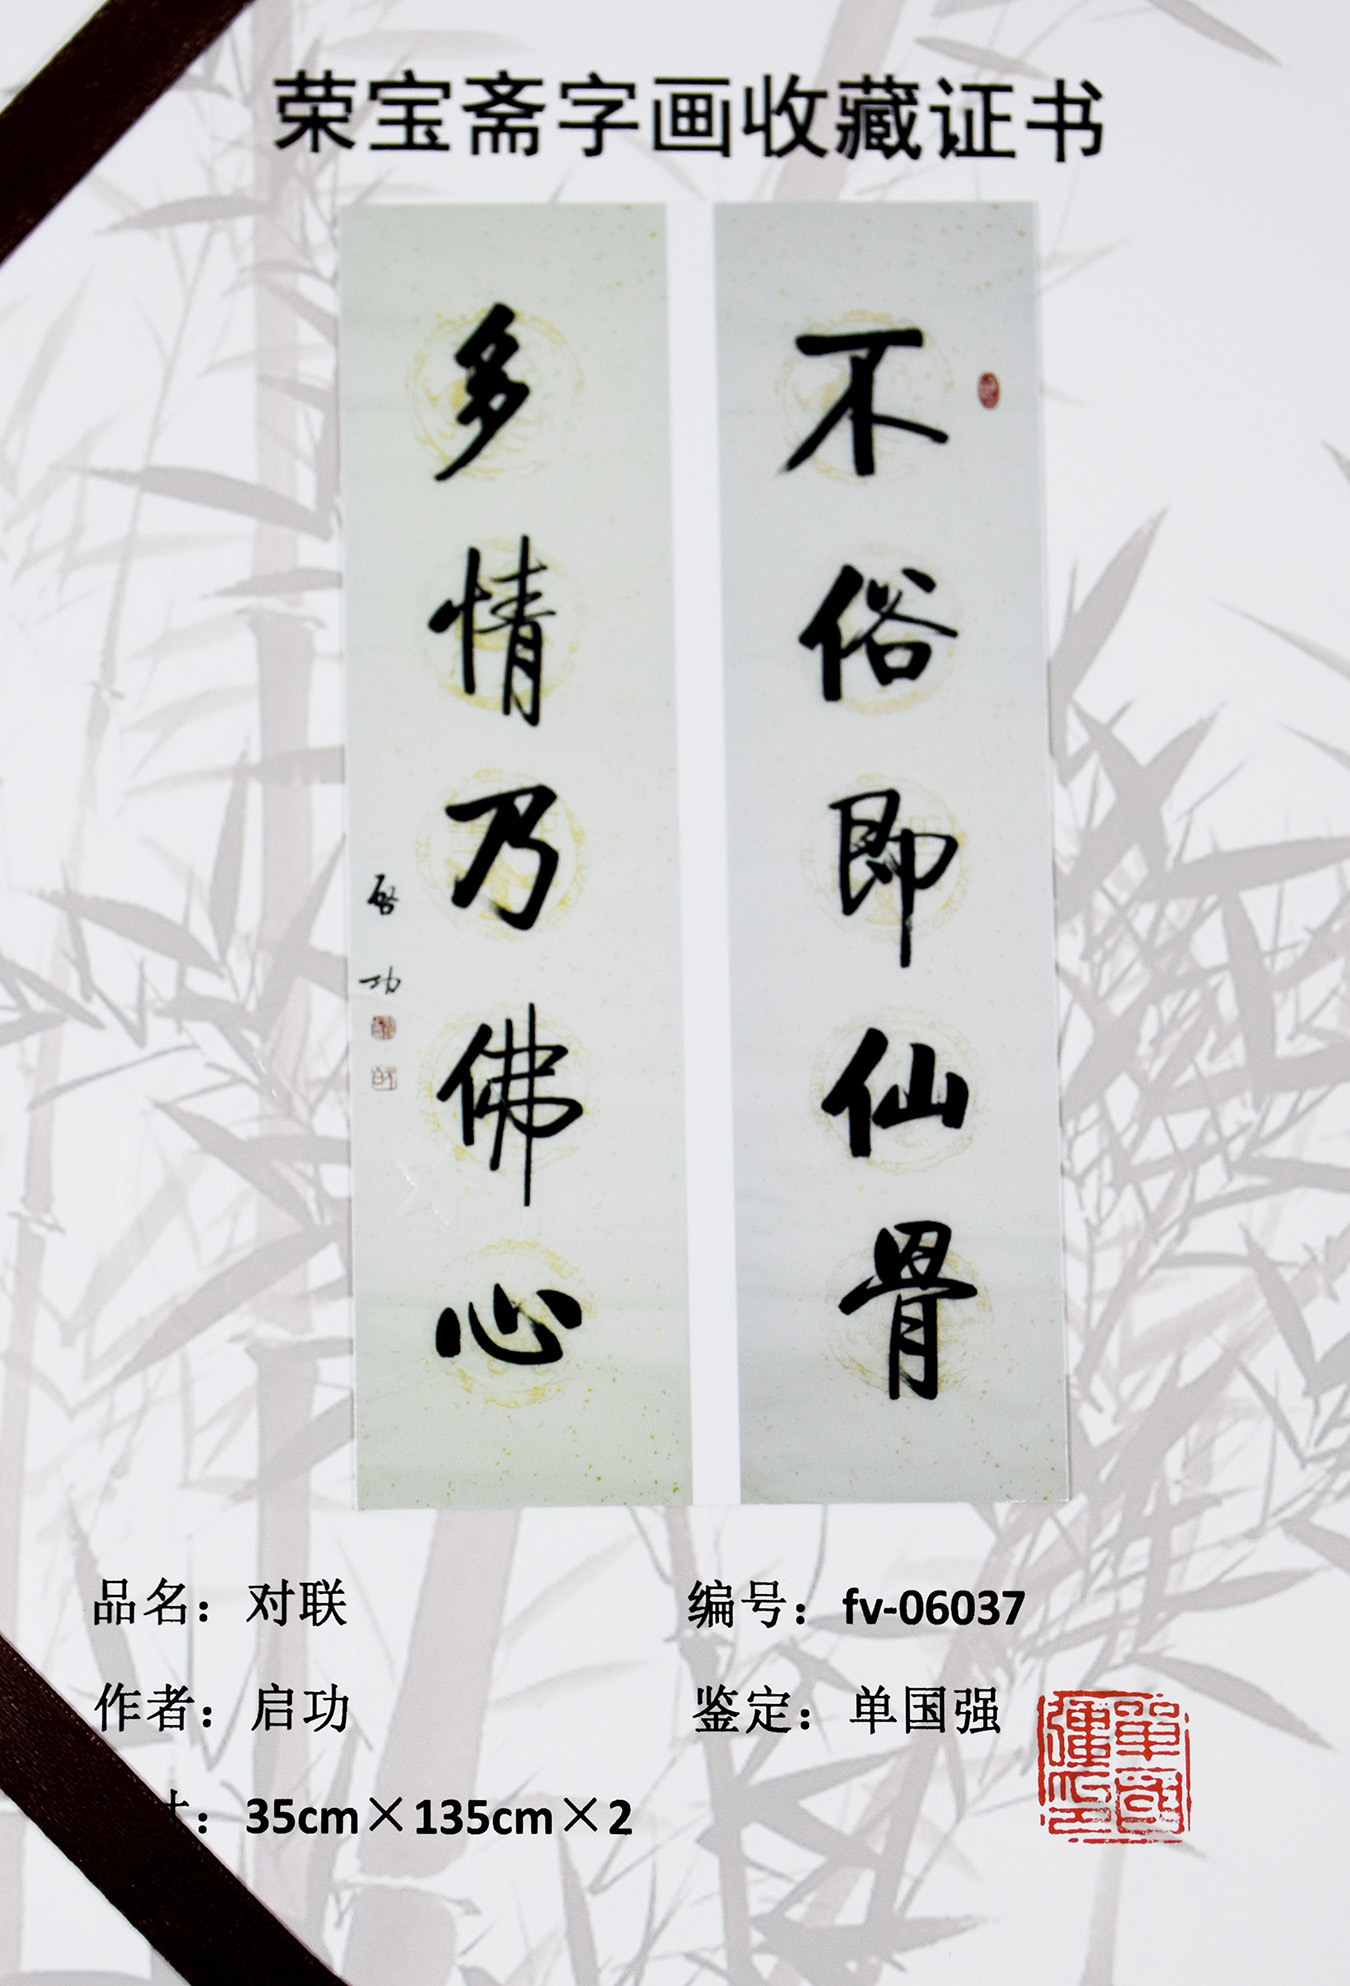 荣宝斋字画收藏证书
不俗即仙骨
多情乃佛心
启功
品名：对联
编号：fv-06037
作者：启功
鉴定：单国强
寸：35cm×135cm×2
單國強印